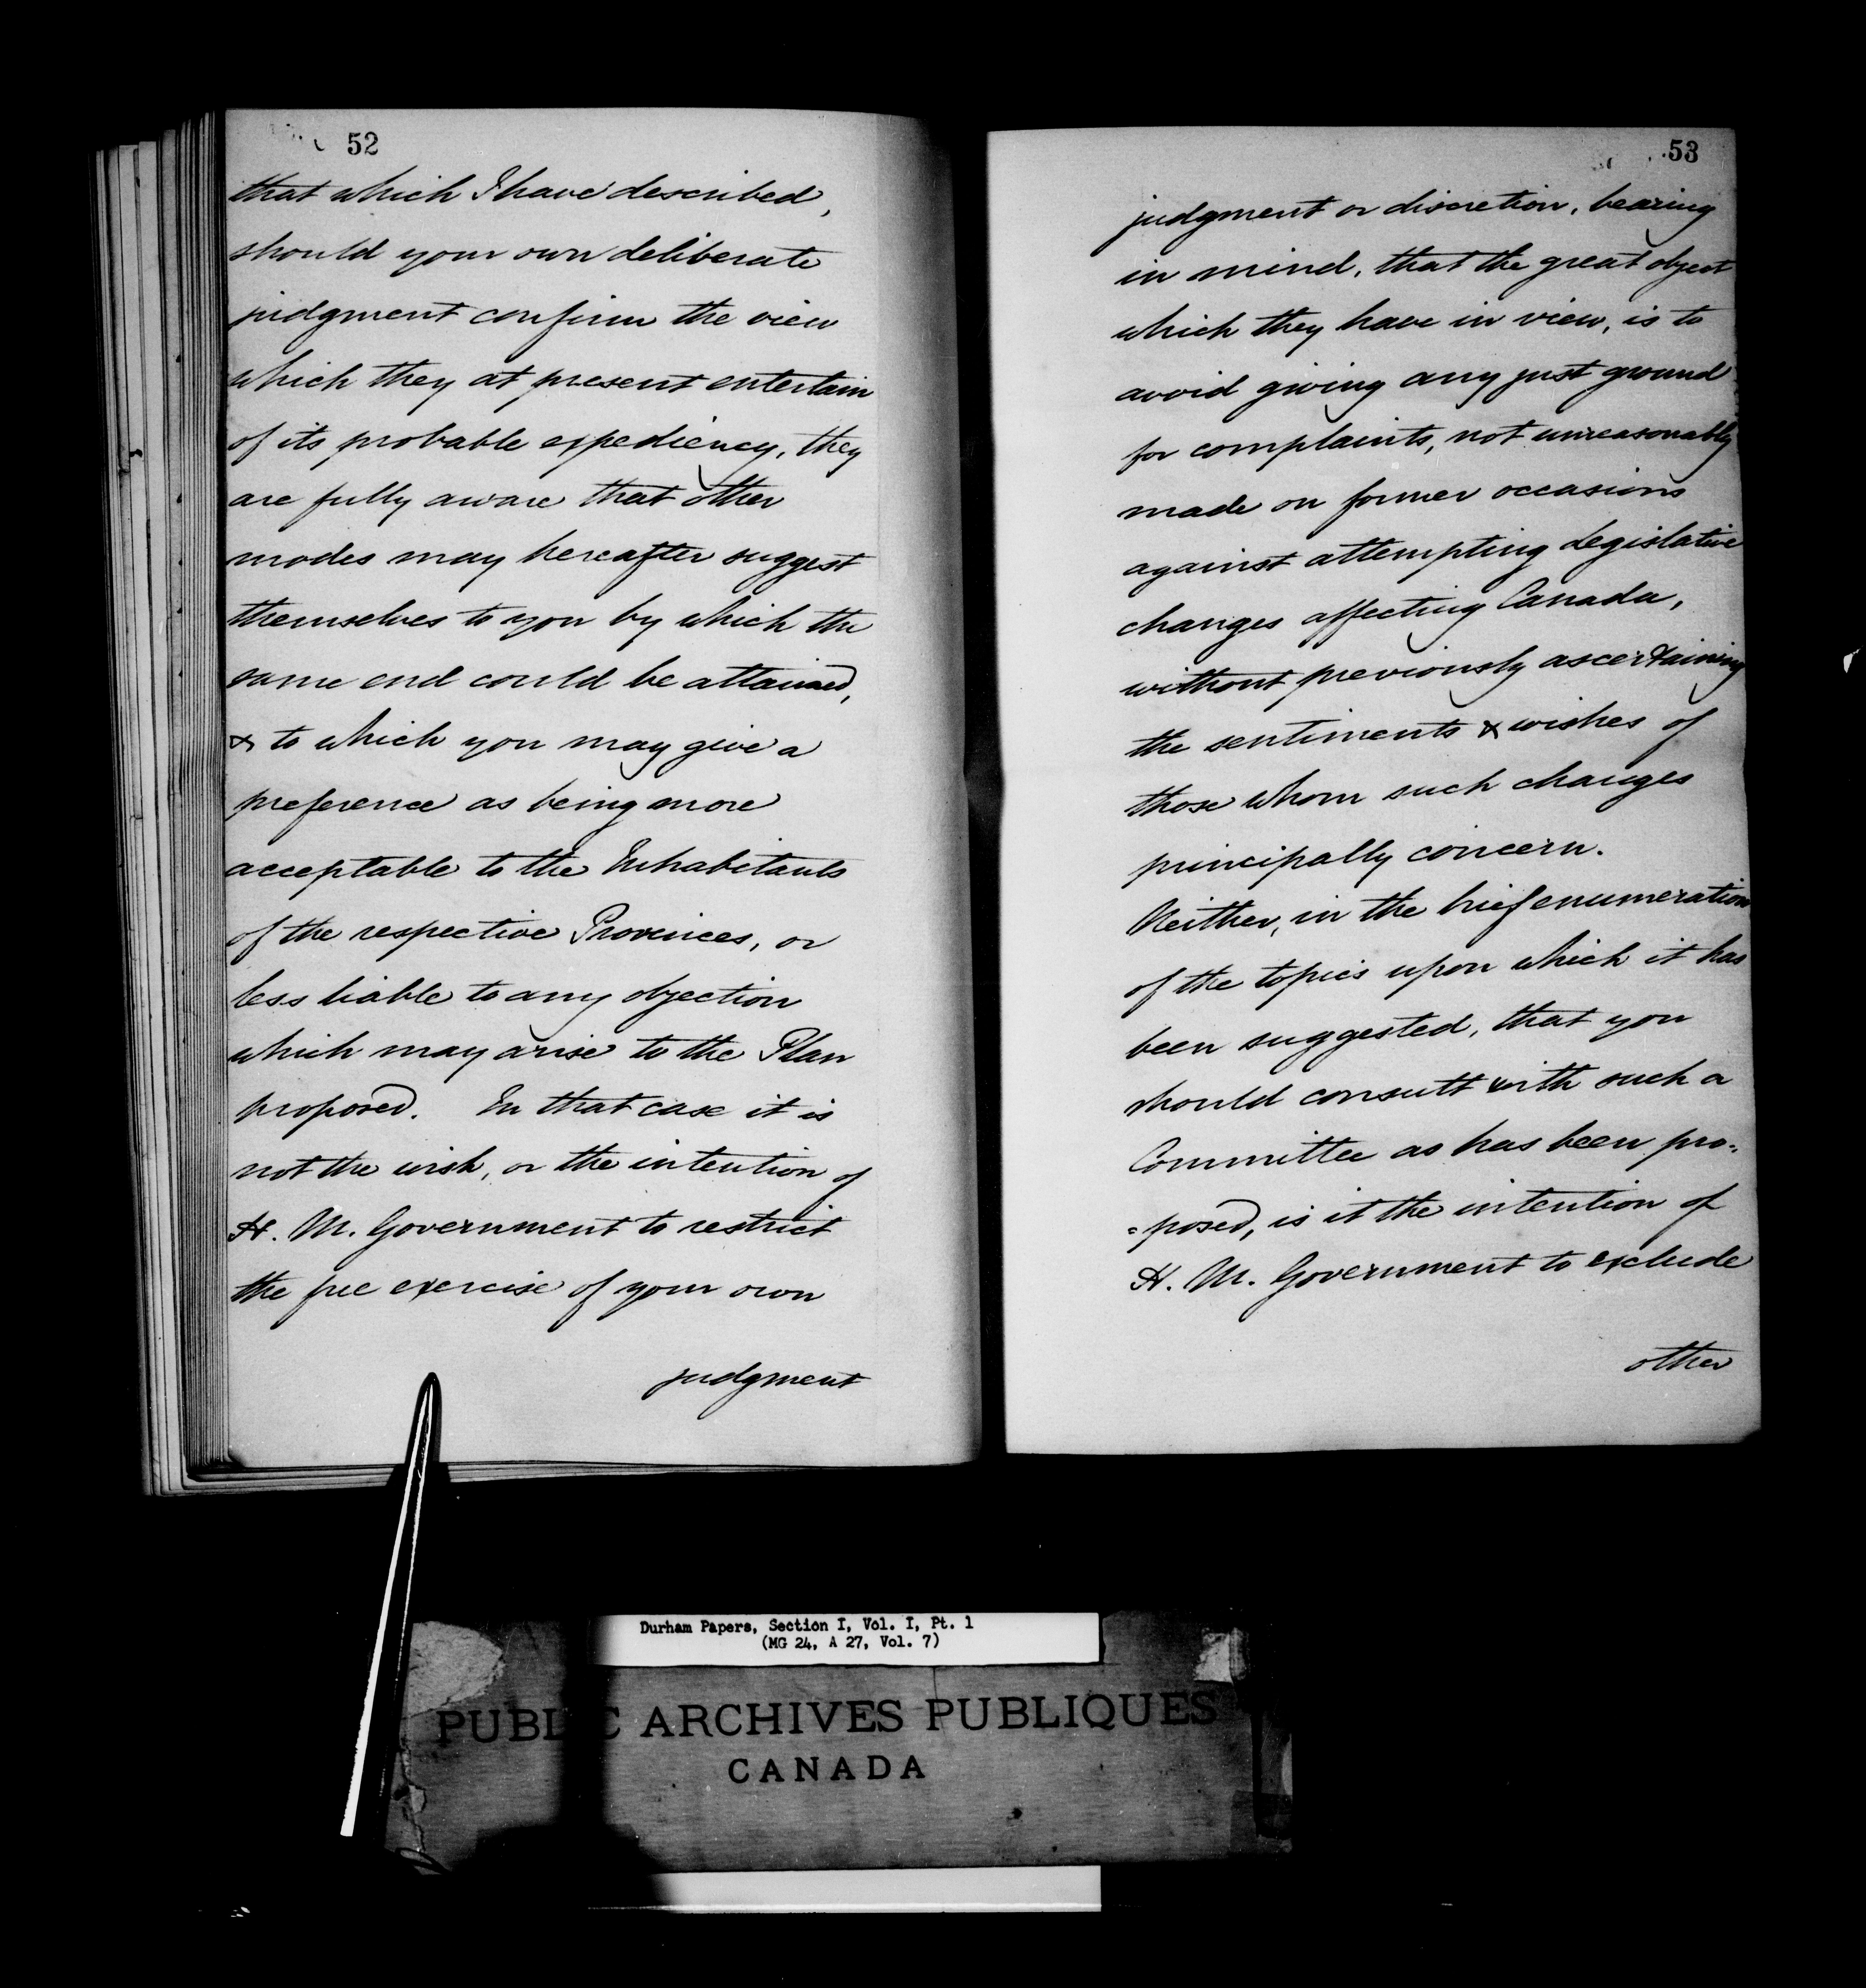 52
that which I have described,
should your own deliberate
judgment confirm the view
which they at present entertain
of its probable expediency, they
are fully aware that other
modes may hereafter suggest
themselves to you by which the
same end could be attained,
& to which you may give a
preference as being more
acceptable to the Inhabitants
of the respective Provinces, or
less liable to any objection
which may arise to the Plan
proposed. In that case it is
not the wish, or the intention of
H. M. Government to restrict
the free exercise of your own
judgment
53
judgment or discretion, bearing
in mind, that the great object
which they have in view, is to
avoid giving any just ground
for complaints, not unreasonably
made on former occasions
against attempting Legislative
changes affecting Canada,
without previously ascertaining
the sentiments & wishes of
those whom such changes
principally concern.
Neither, in the brief enumeration
of the topics upon which it has
been suggested, that you
should consult with such a
Committee as has been pro-
=posed, is it the intention of
H. M. Government to exclude
other
Durham Papers, Section I, Vol. I, Pt. 1
(MG 24, A 27, Vol. 7)
PUBLIC ARCHIVES PUBLIQUES
CANADA